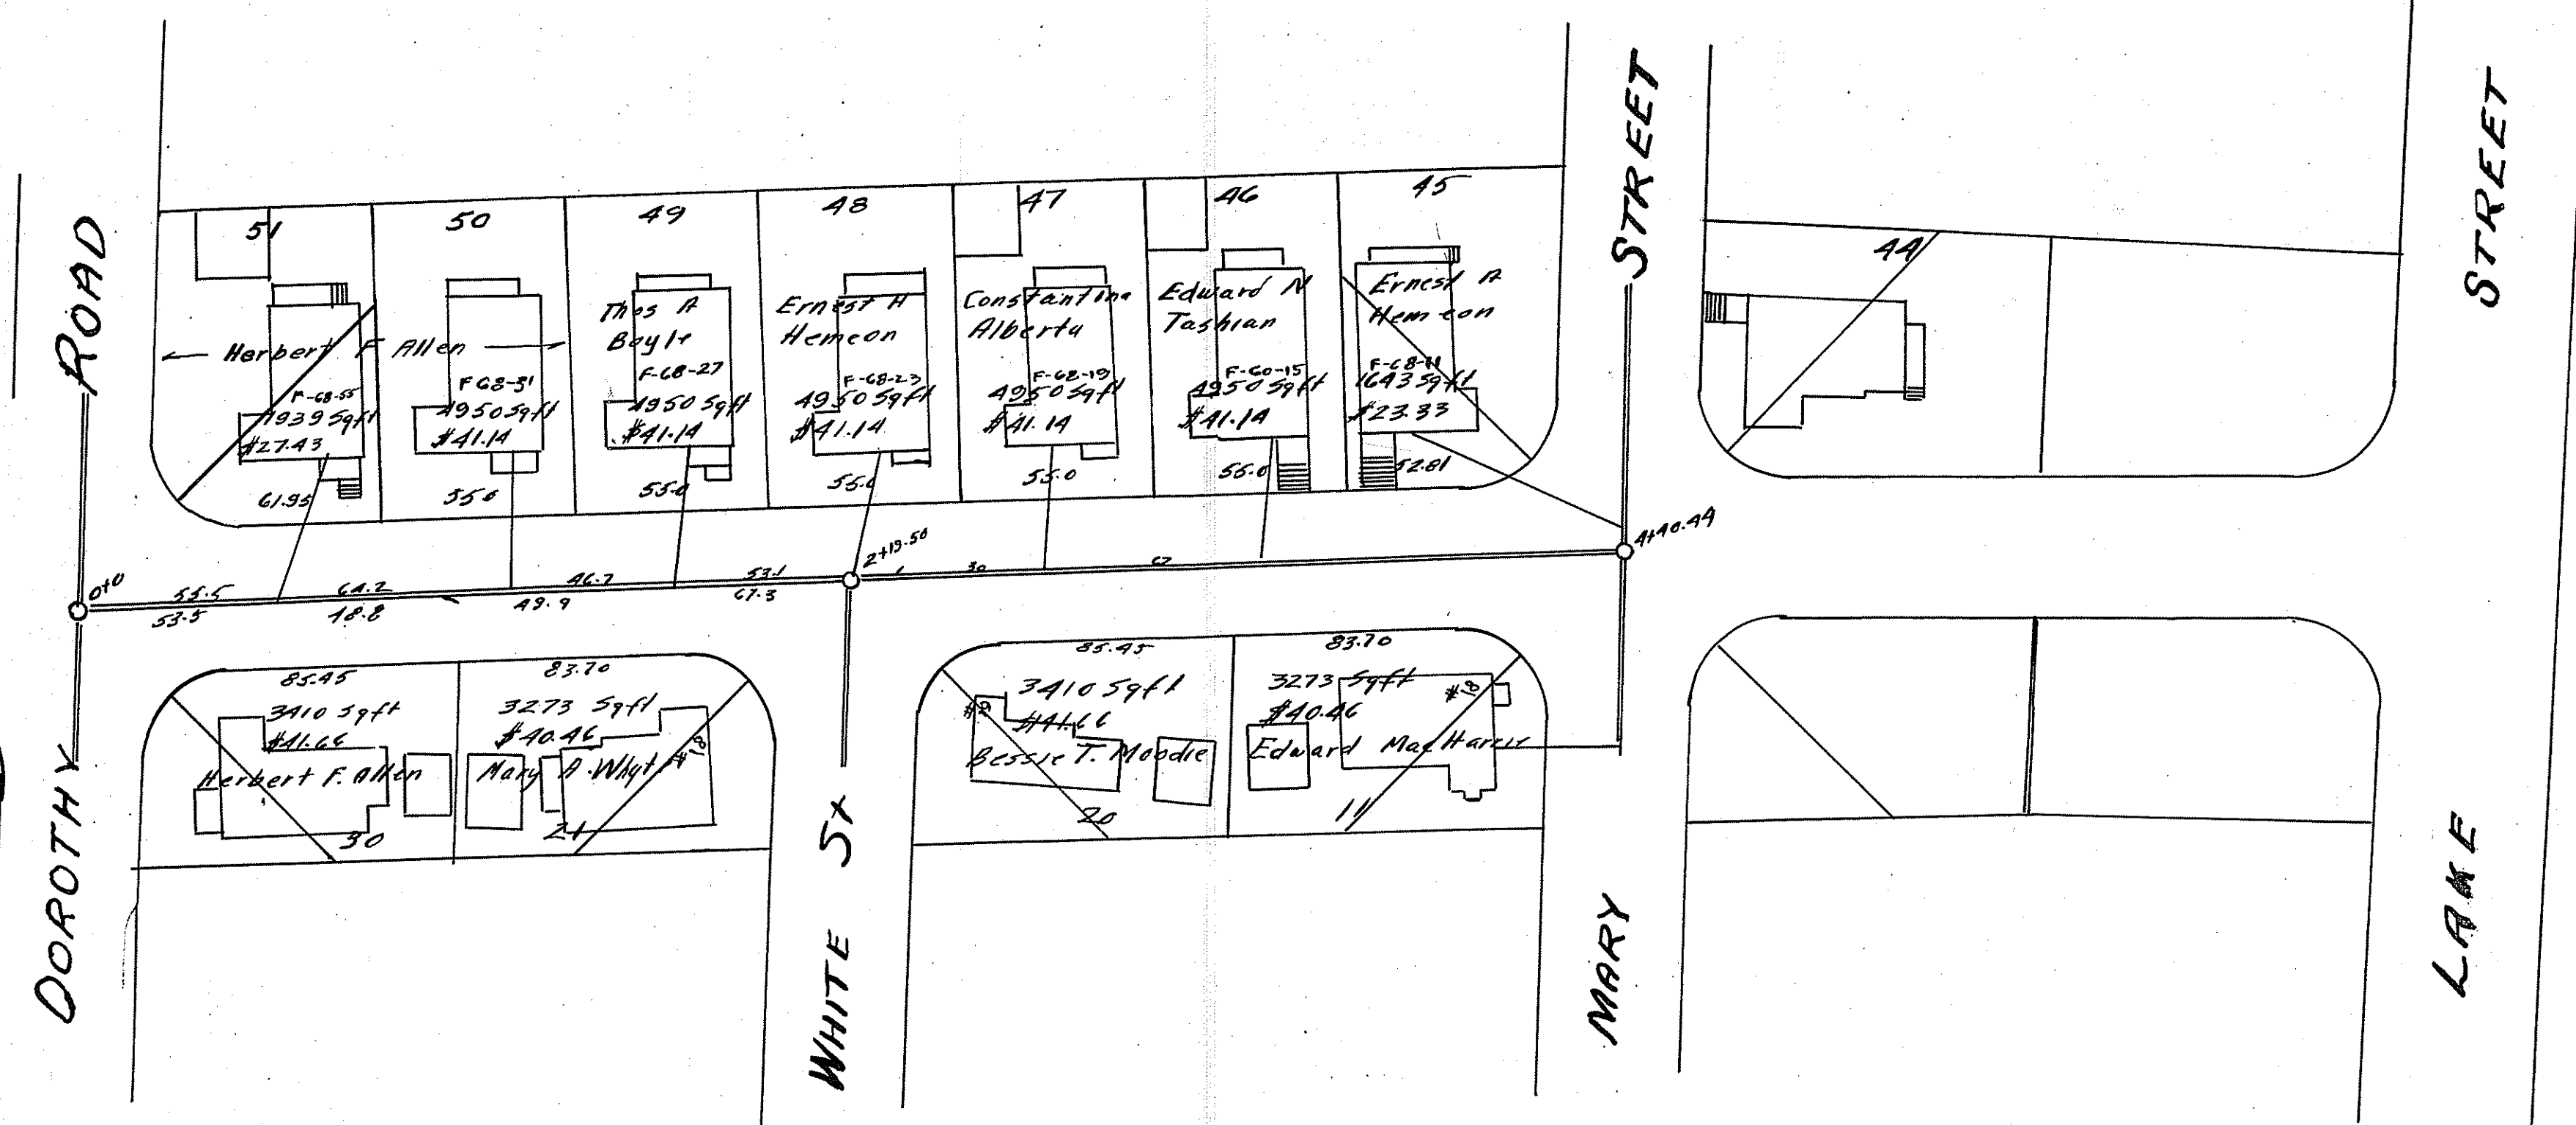 DOROTHY ROAD
WHITE St
MARY STREET
LAKE STREET
51
50
49
48
47
46
45
44
← Herbert F Allen →
F-68-55
1939 Sqft
$27.43
61.95
F 68-31
4950 Sqft
$41.14
55.0
Thos A
Boyle
F-68-27
4950 Sqft
$41.14
55.0
Ernest H
Hemeon
F-68-23
4950 Sqft
$41.14
55.0
Constantina
Alberta
F-68-19
4950 Sqft
$41.14
55.0
Edward N
Tashian
F-60-15
4950 Sqft
$41.14
55.0
Ernest A
Hemeon
F-68-11
1643 Sqft
$23.33
52.81
0+0
55.5
64.2
46.7
53.1
2+19.50
1
30
67
4+40.44
53.5
48.8
49.9
67.3
85.45
3410 Sqft
$41.66
Herbert F. Allen
30
83.70
3273 Sqft
$40.46
#18
Mary A. Whyt
21
85.45
3410 Sqft
#19
$41.66
Bessie T. Moodie
20
83.70
3273 Sqft
#18
$40.46
Edward MacHarrie
11